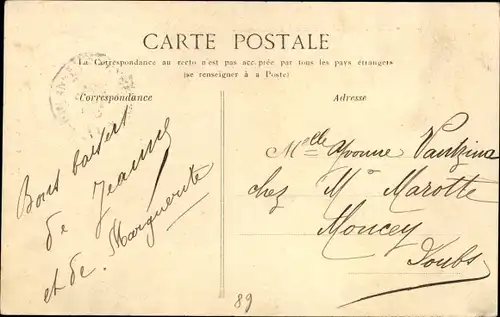 CARTE POSTALE
La Correspondance au recto n'est pas acceptée par tous les pays étrangers
(se renseigner à a Poste)
Correspondance
Adresse
Bons baisers
de Jeanne
et de Marguerite
Melle Yvonne
chez Mr Marotte
Moncey
Doubs
89